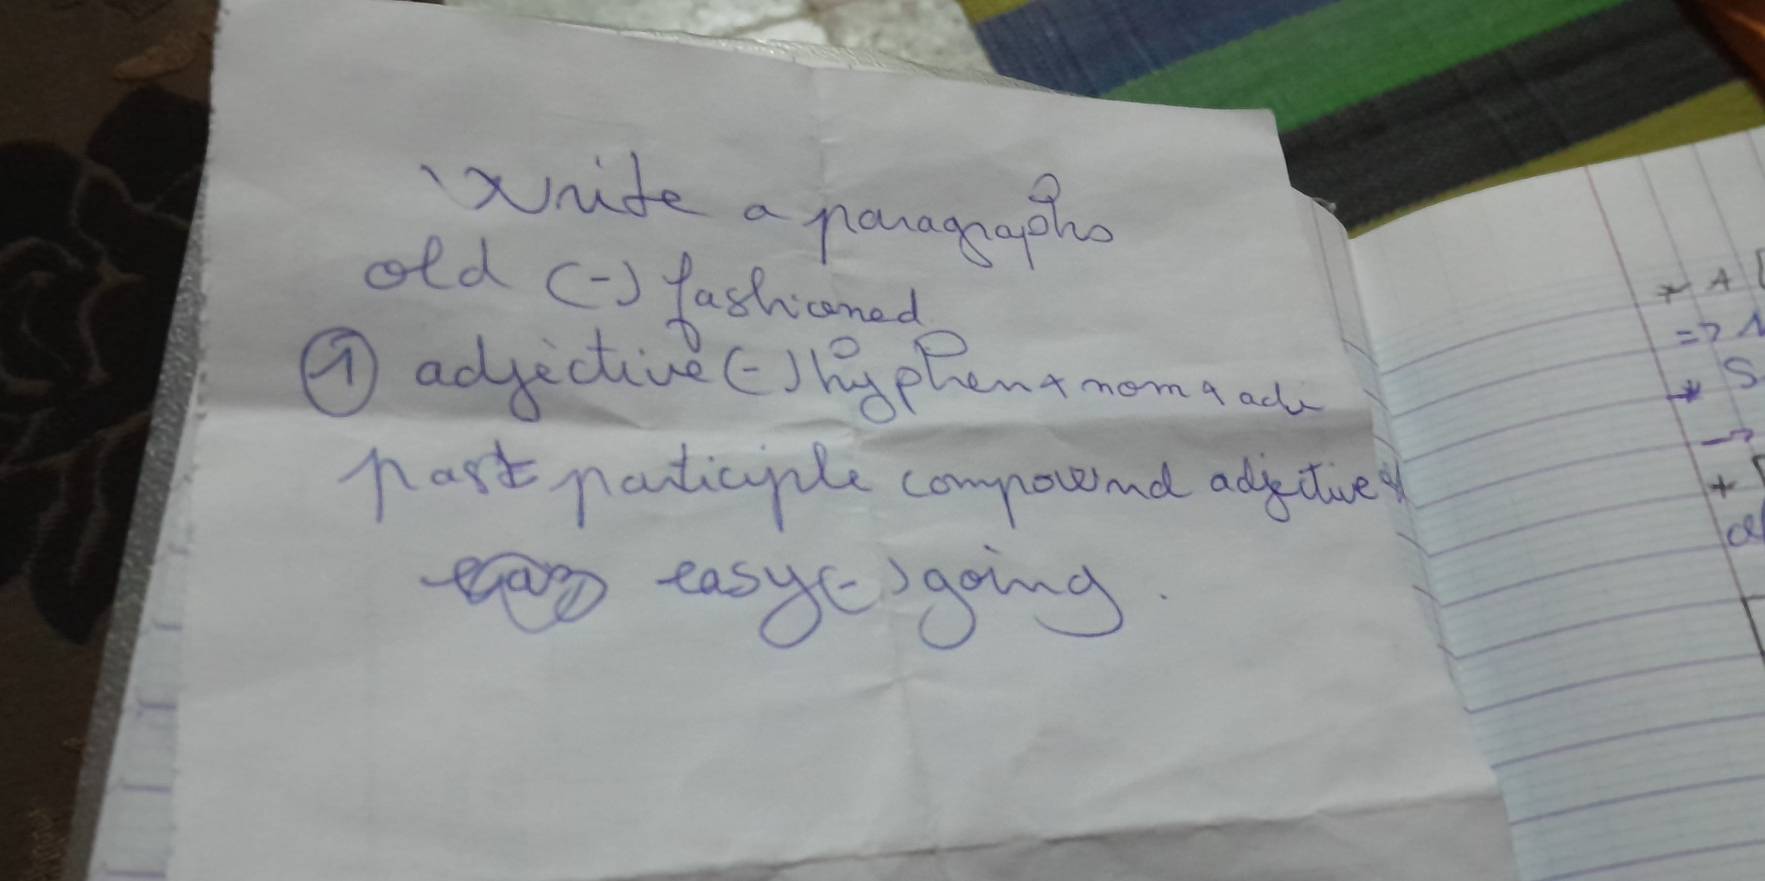 Write a paragraphs
old (-) fashioned
① adjective (-) hyphen + nom + adv
past participle compound adjective
easy (-) going.
* A
=>
* S
->
+